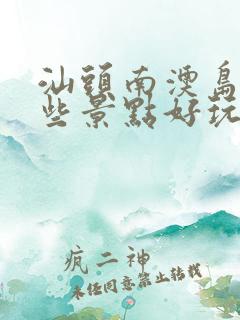 汕頭南澳島
些景點好玩
疯二神
未经同意禁止转载